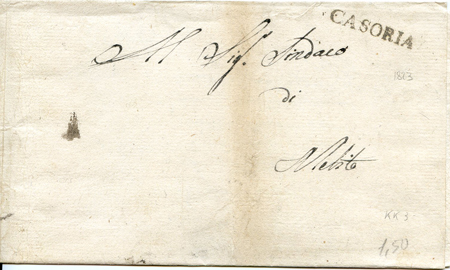 CASORIA
Al Sig.r Sindaco
1813
di
Melito
KK 3
1,50